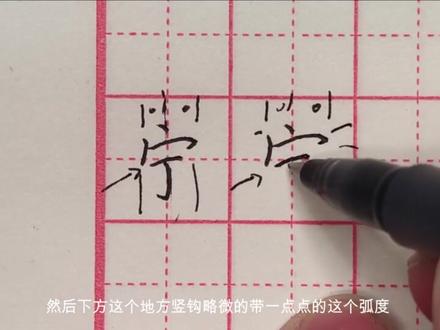 宁
然后下方这个地方竖钩略微的带一点点的这个弧度